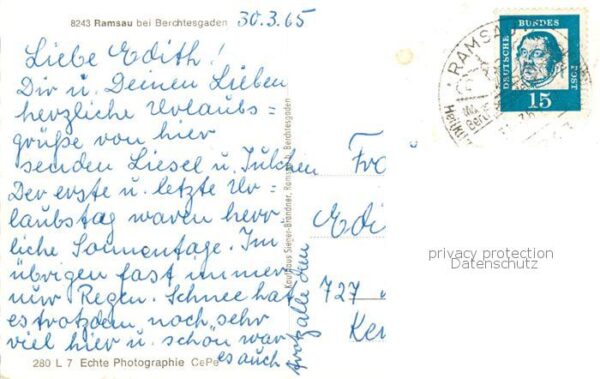 8243 Ramsau bei Berchtesgaden
30.3.65
Liebe Edith!
Dir u. Deinen Lieben
herzliche Urlaubs=
grüße von hier
senden Liesel u. Julchen
Der erste u. letzte Ur=
laubstag waren herr
liche Sonnentage. Im
übrigen fast immer
nur Regen. Schnee hat
es trotzdem noch sehr
viel hier u. schön war
es auch
trotz alle dem
280 L 7 Echte Photographie CePe
Kaufhaus Sieger-Brandner, Ramsau b. Berchtesgaden
Fra
Edi
727
Ker
DEUTSCHE BUNDES POST
15
RAMSA
privacy protection
Datenschutz